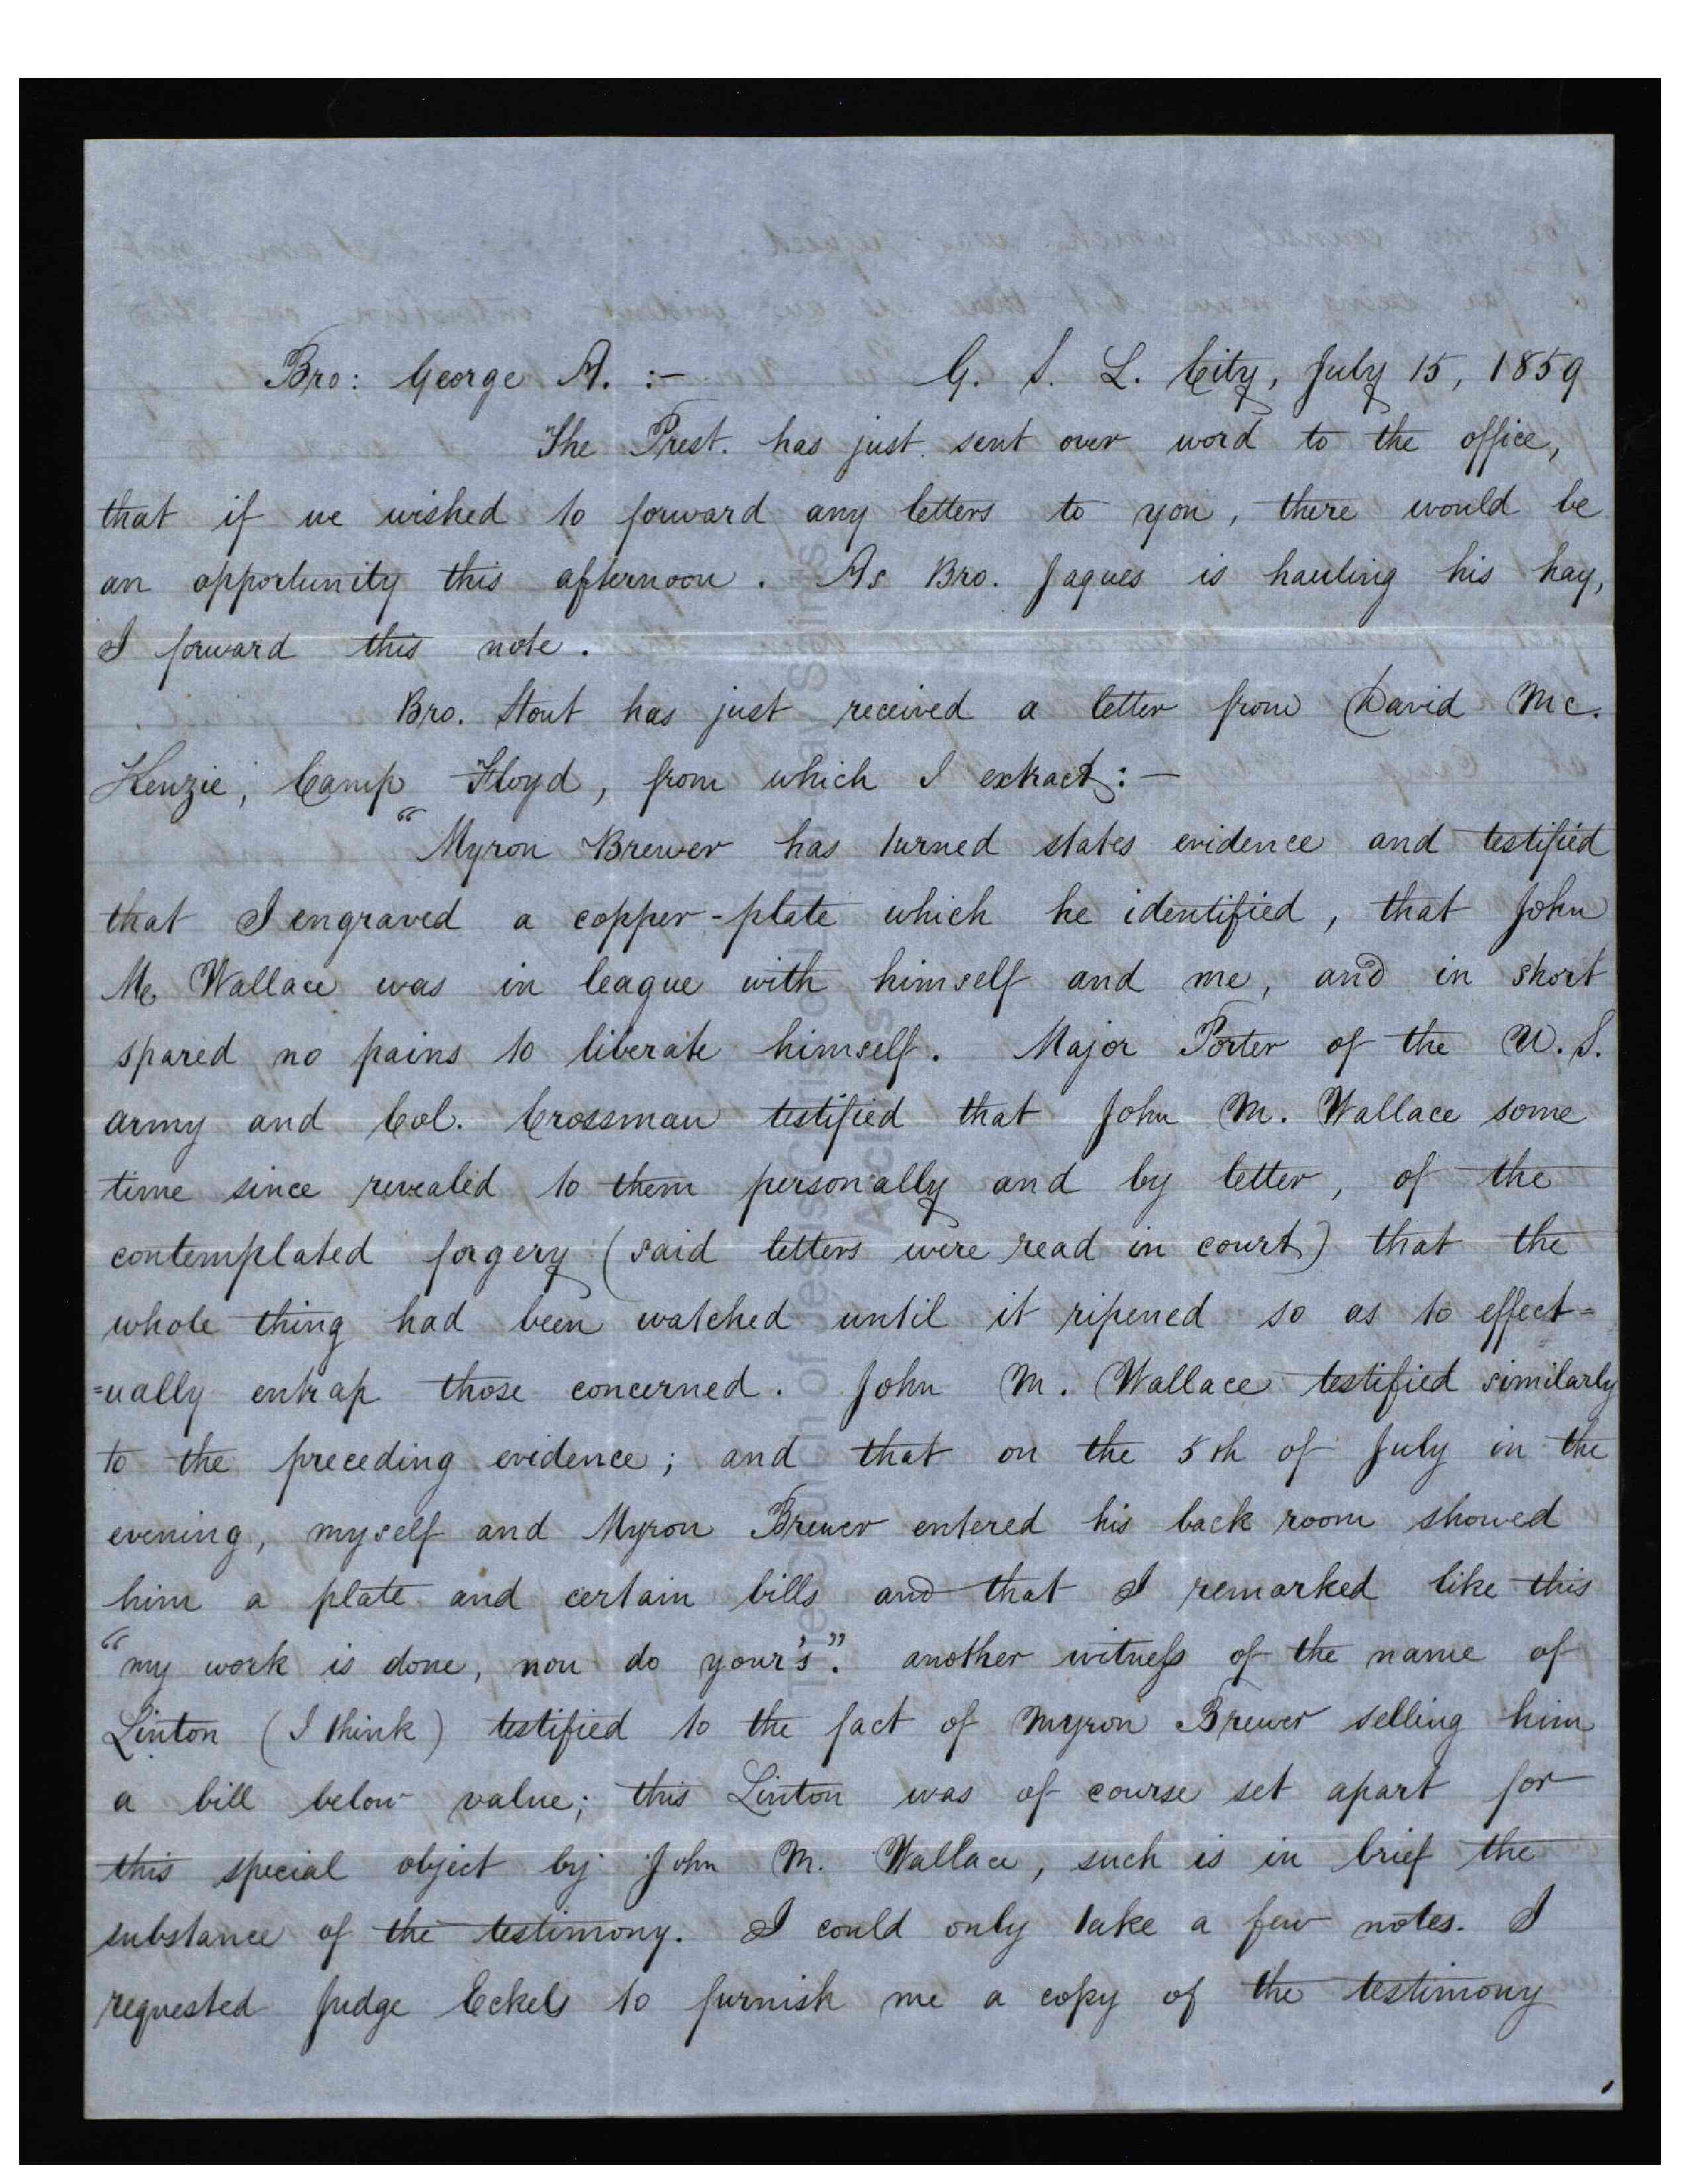 Bro: George A. :- G. S. L. City, July 15, 1859
The Prest. has just sent over word to the office,
that if we wished to forward any letters to you, there would be
an opportunity this afternoon. As Bro. Jaques is hauling his hay,
I forward this note.
Bro. Stout has just received a letter from David Mc.
Kenzie, Camp Floyd, from which I extract:-
"Myron Brewer has turned states evidence and testified
that I engraved a copper-plate which he identified, that John
Mc Wallace was in league with himself and me, and in short
spared no pains to liberate himself. Major Porter of the U.S.
army and Col. Crossman testified that John M. Wallace some
time since revealed to them personally and by letter, of the
contemplated forgery (said letters were read in court) that the
whole thing had been watched until it ripened so as to effect=
=ually entrap those concerned. John M. Wallace testified similarly
to the preceding evidence; and that on the 5th of July in the
evening, myself and Myron Brewer entered his back room showed
him a plate and certain bills and that I remarked like this
"my work is done, now do your's". another witness of the name of
Linton (I think) testified to the fact of Myron Brewer selling him
a bill below value; this Linton was of course set apart for
this special object by John M. Wallace, such is in brief the
substance of the testimony. I could only take a few notes. I
requested Judge Eckels to furnish me a copy of the testimony